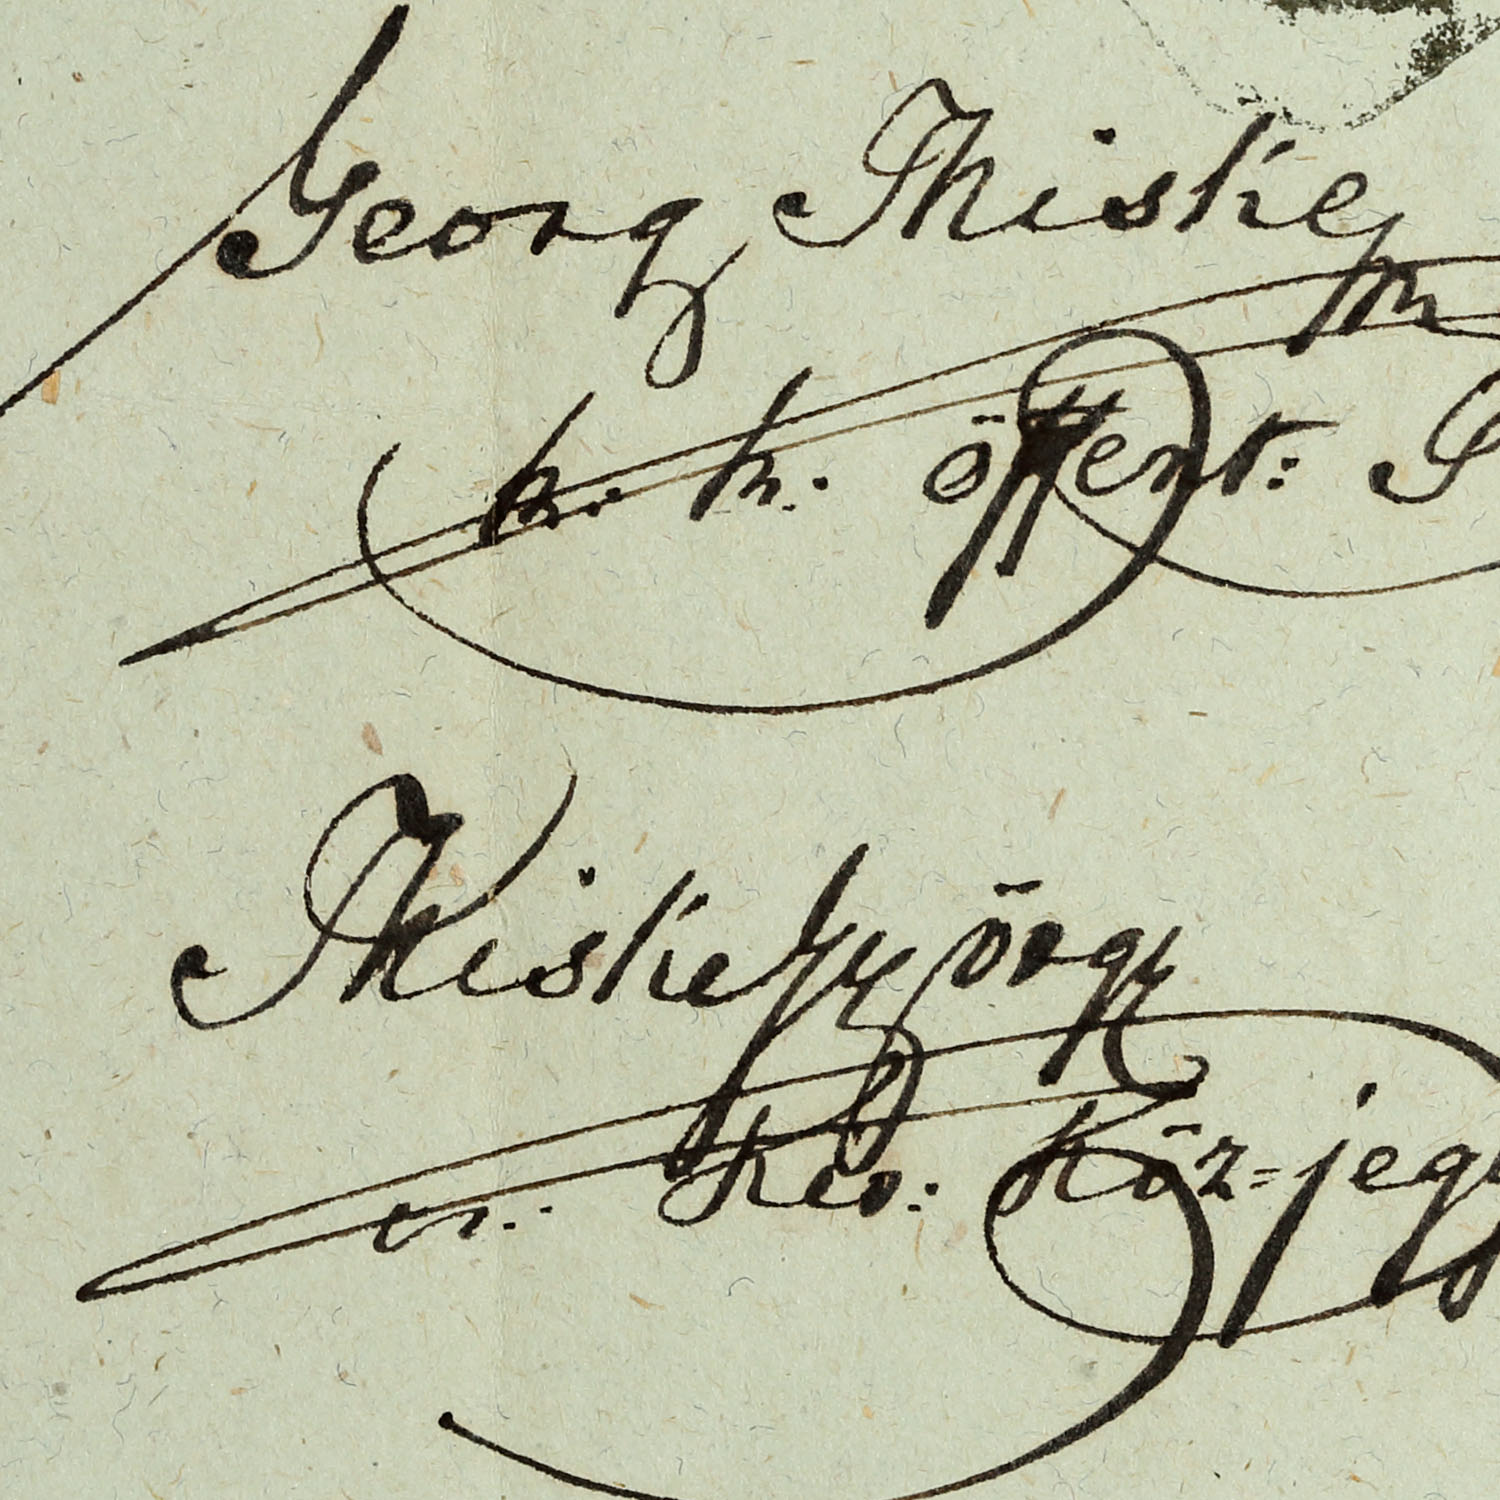 Georg Thiske
k. k. öffent:
Thiske György
cs. Kir: Köz=jegy